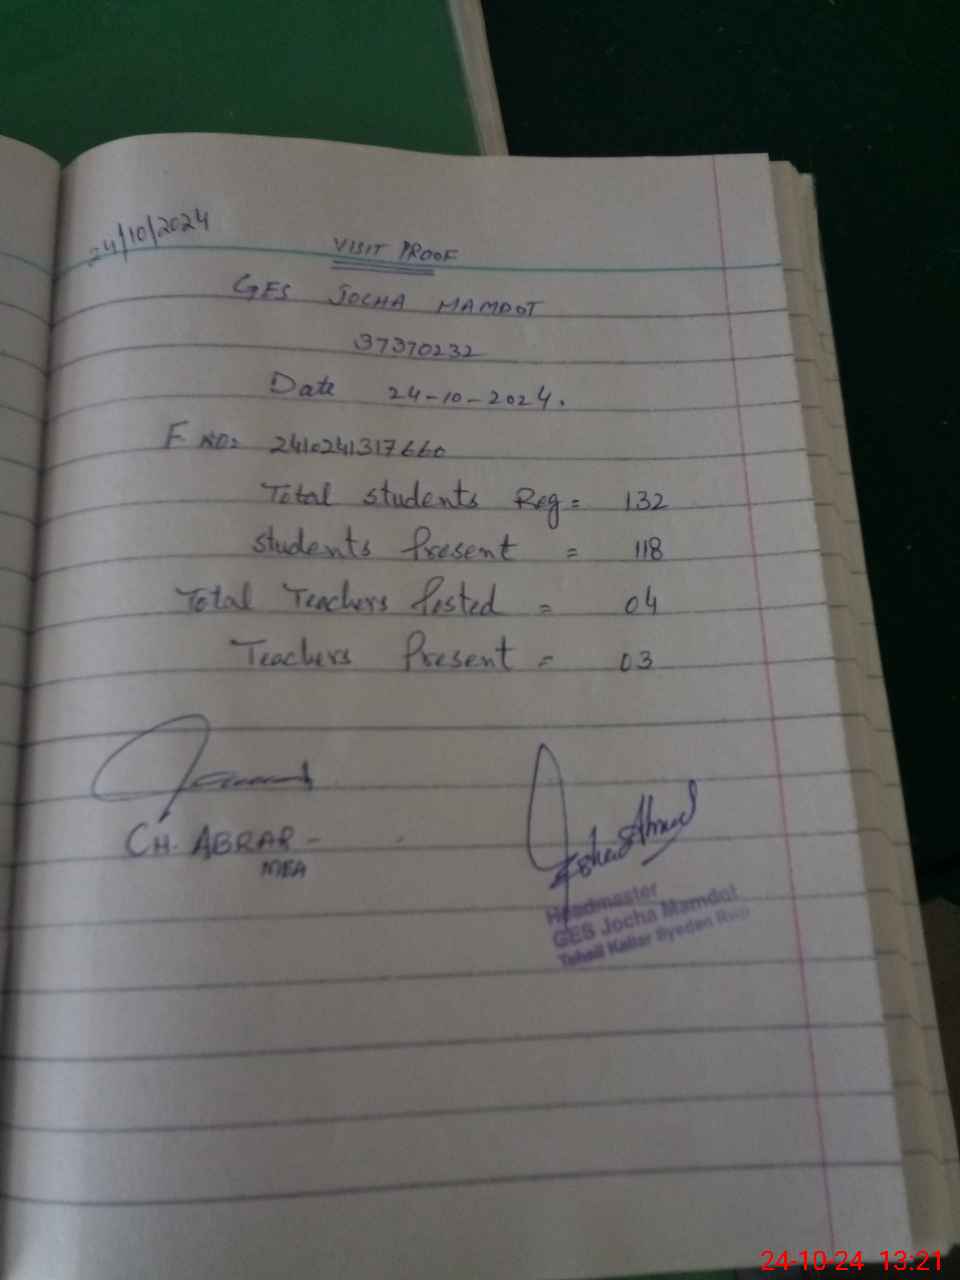 24/10/2024
VISIT PROOF
GES JOCHA MAMDOT
37370232
Date 24-10-2024.
F NO: 2410241317660
Total students Reg = 132
students Present = 118
Total Teachers Posted = 04
Teachers Present = 03
CH. ABRAR -
MEA
Ahmed
Headmaster
GES Jocha Mamdot
Tehsil Kallar Syedan Rwp
24-10-24 13:21